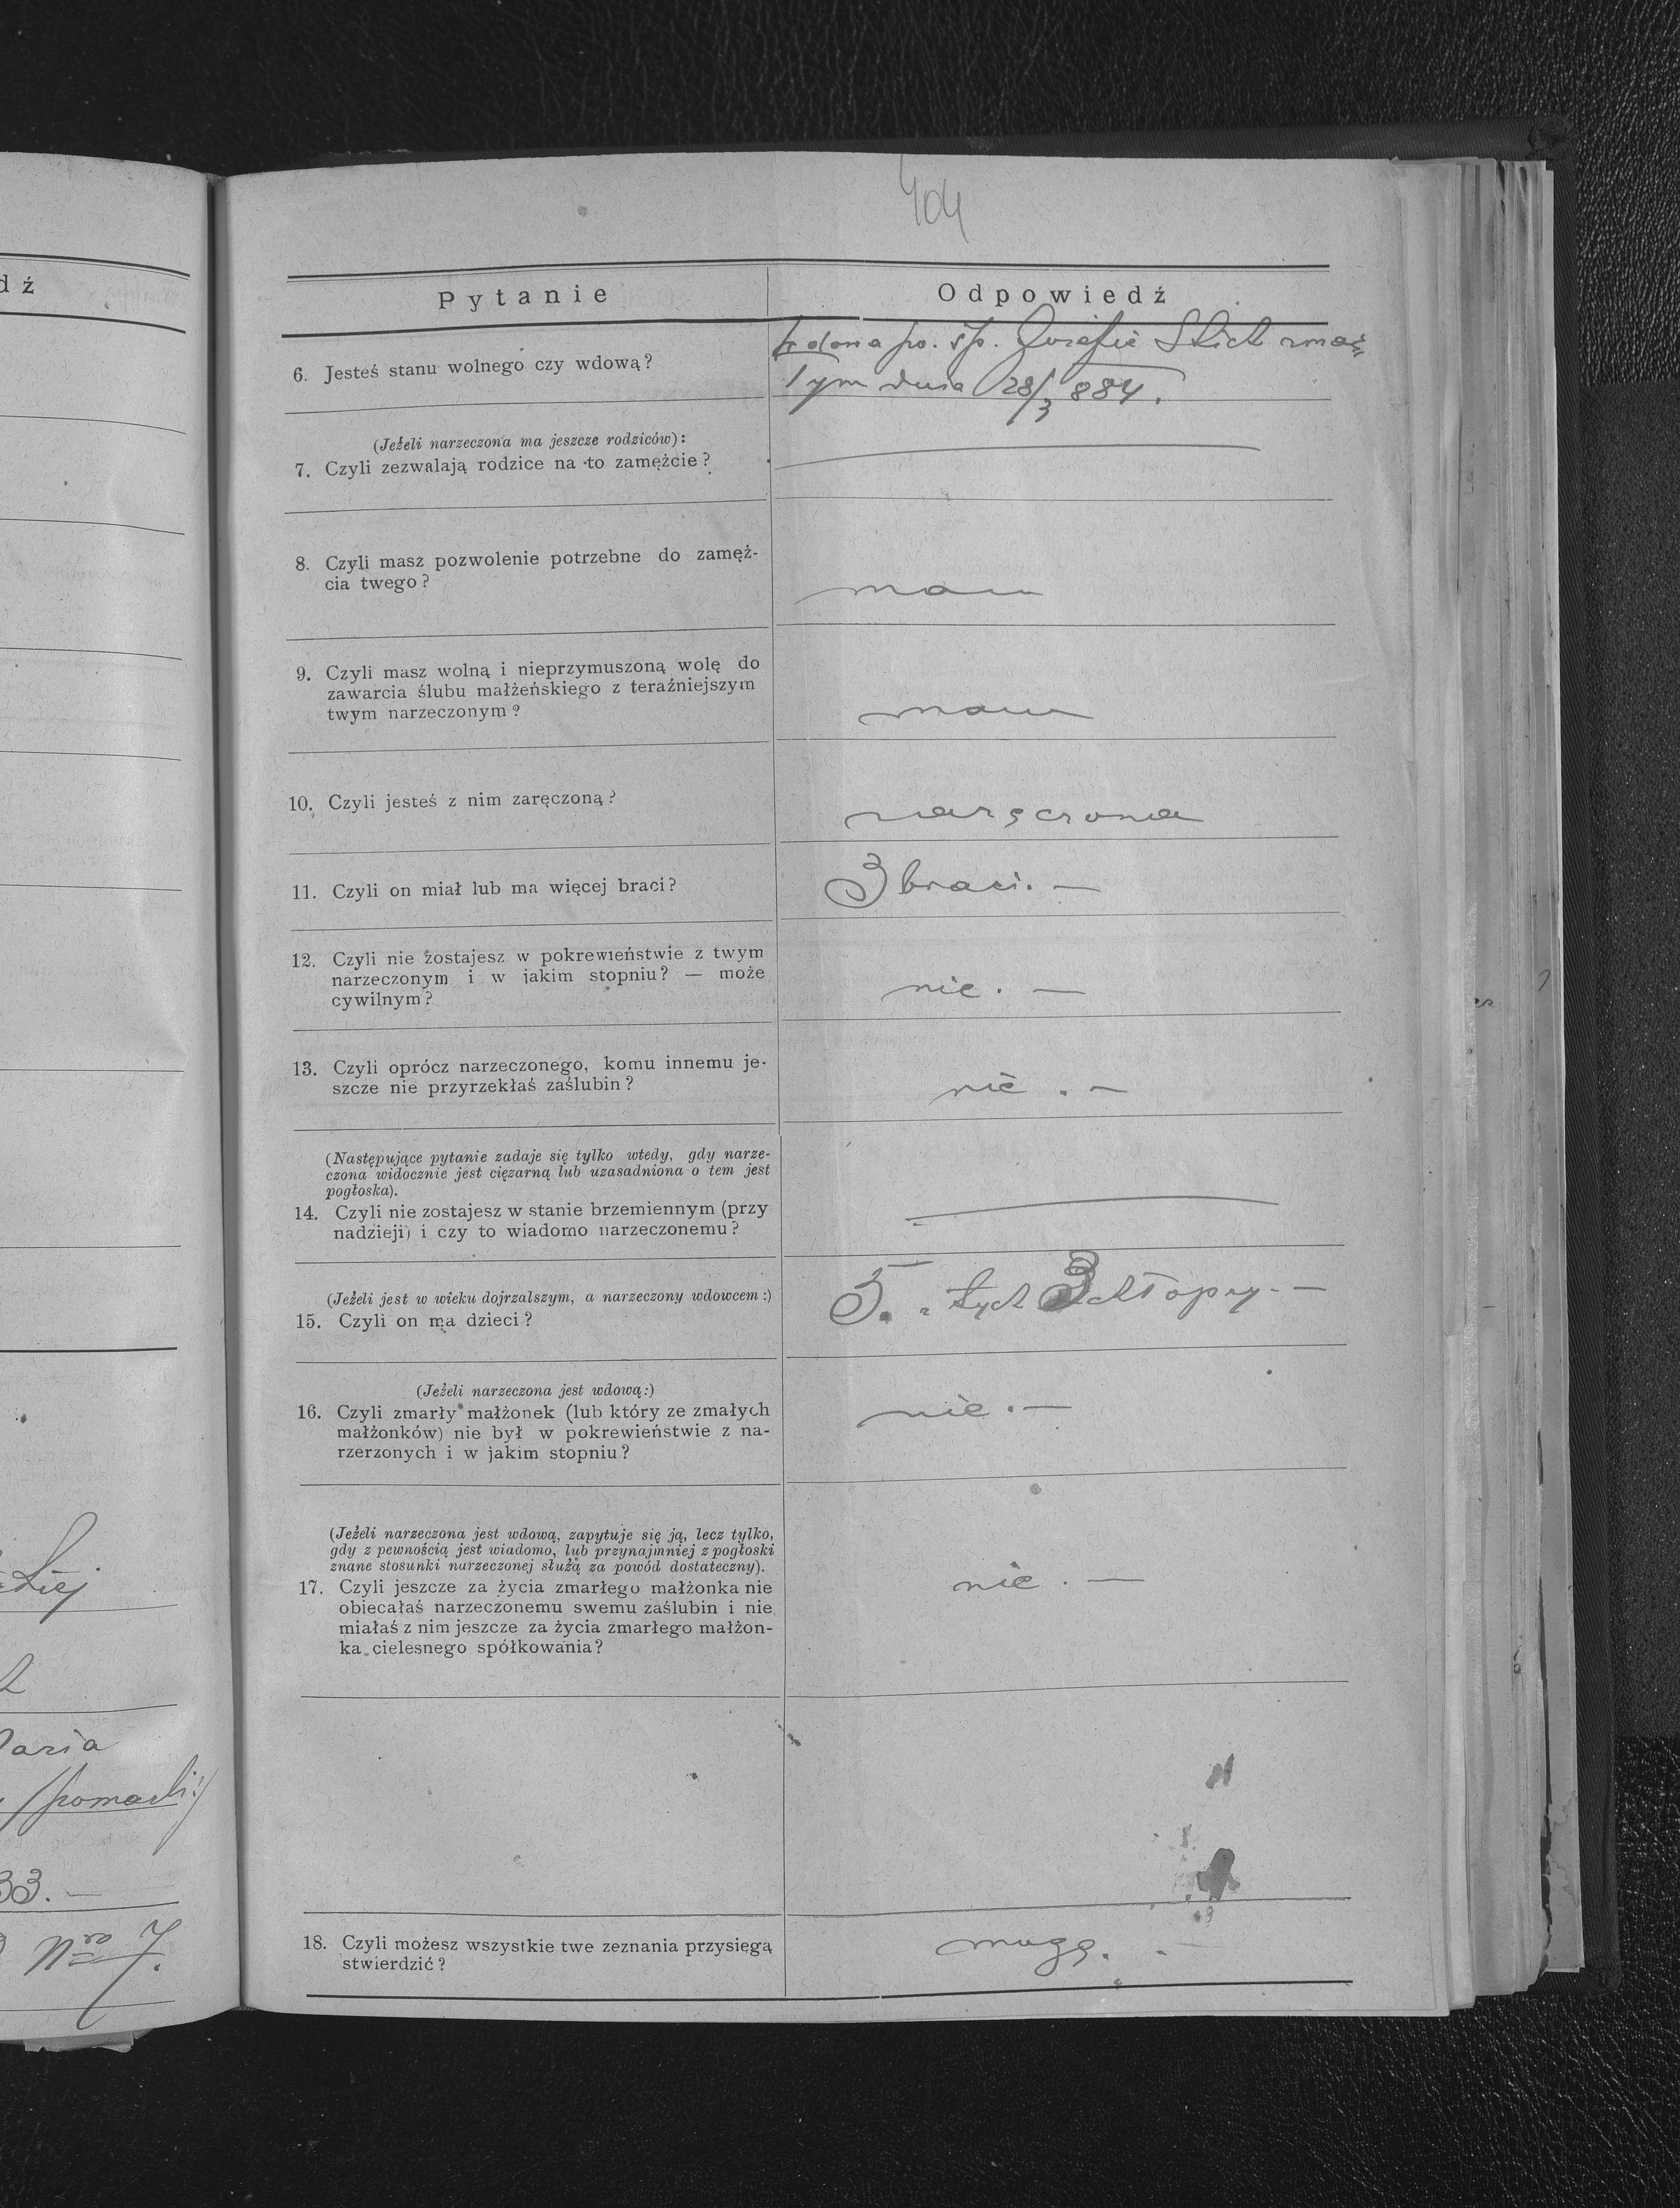 dź
kiej
aria
pomarli:/
33. —
Nro 7.
404
Pytanie
Odpowiedź
6. Jesteś stanu wolnego czy wdową?
po. śp. Józefie zmar=
łym dnia 28/3 884.
(Jeżeli narzeczona ma jeszcze rodziców):
7. Czyli zezwalają rodzice na to zamężcie?
8. Czyli masz pozwolenie potrzebne do zamęż-
cia twego?
mam
9. Czyli masz wolną i nieprzymuszoną wolę do
zawarcia ślubu małżeńskiego z teraźniejszym
twym narzeczonym?
mam
10. Czyli jesteś z nim zaręczoną?
zaręczona
11. Czyli on miał lub ma więcej braci?
3 braci. —
12. Czyli nie zostajesz w pokrewieństwie z twym
narzeczonym i w jakim stopniu? — może
cywilnym?
nie. —
13. Czyli oprócz narzeczonego, komu innemu je-
szcze nie przyrzekłaś zaślubin?
nie. —
(Następujące pytanie zadaje się tylko wtedy, gdy narze-
czona widocznie jest ciężarną lub uzasadniona o tem jest
pogłoska).
14. Czyli nie zostajesz w stanie brzemiennym (przy
nadzieji) i czy to wiadomo narzeczonemu?
(Jeżeli jest w wieku dojrzalszym, a narzeczony wdowcem:)
15. Czyli on ma dzieci?
5. z tych 3 chłopcy. —
(Jeżeli narzeczona jest wdową:)
16. Czyli zmarły małżonek (lub który ze zmałych
małżonków) nie był w pokrewieństwie z na-
rzerzonych i w jakim stopniu?
nie. —
(Jeżeli narzeczona jest wdową, zapytuje się ją, lecz tylko,
gdy z pewnością jest wiadomo, lub przynajmniej z pogłoski
znane stosunki narzeczonej służą za powód dostateczny).
17. Czyli jeszcze za życia zmarłego małżonka nie
obiecałaś narzeczonemu swemu zaślubin i nie
miałaś z nim jeszcze za życia zmarłego małżon-
ka cielesnego spółkowania?
nie. —
18. Czyli możesz wszystkie twe zeznania przysięgą
stwierdzić?
mogę. —